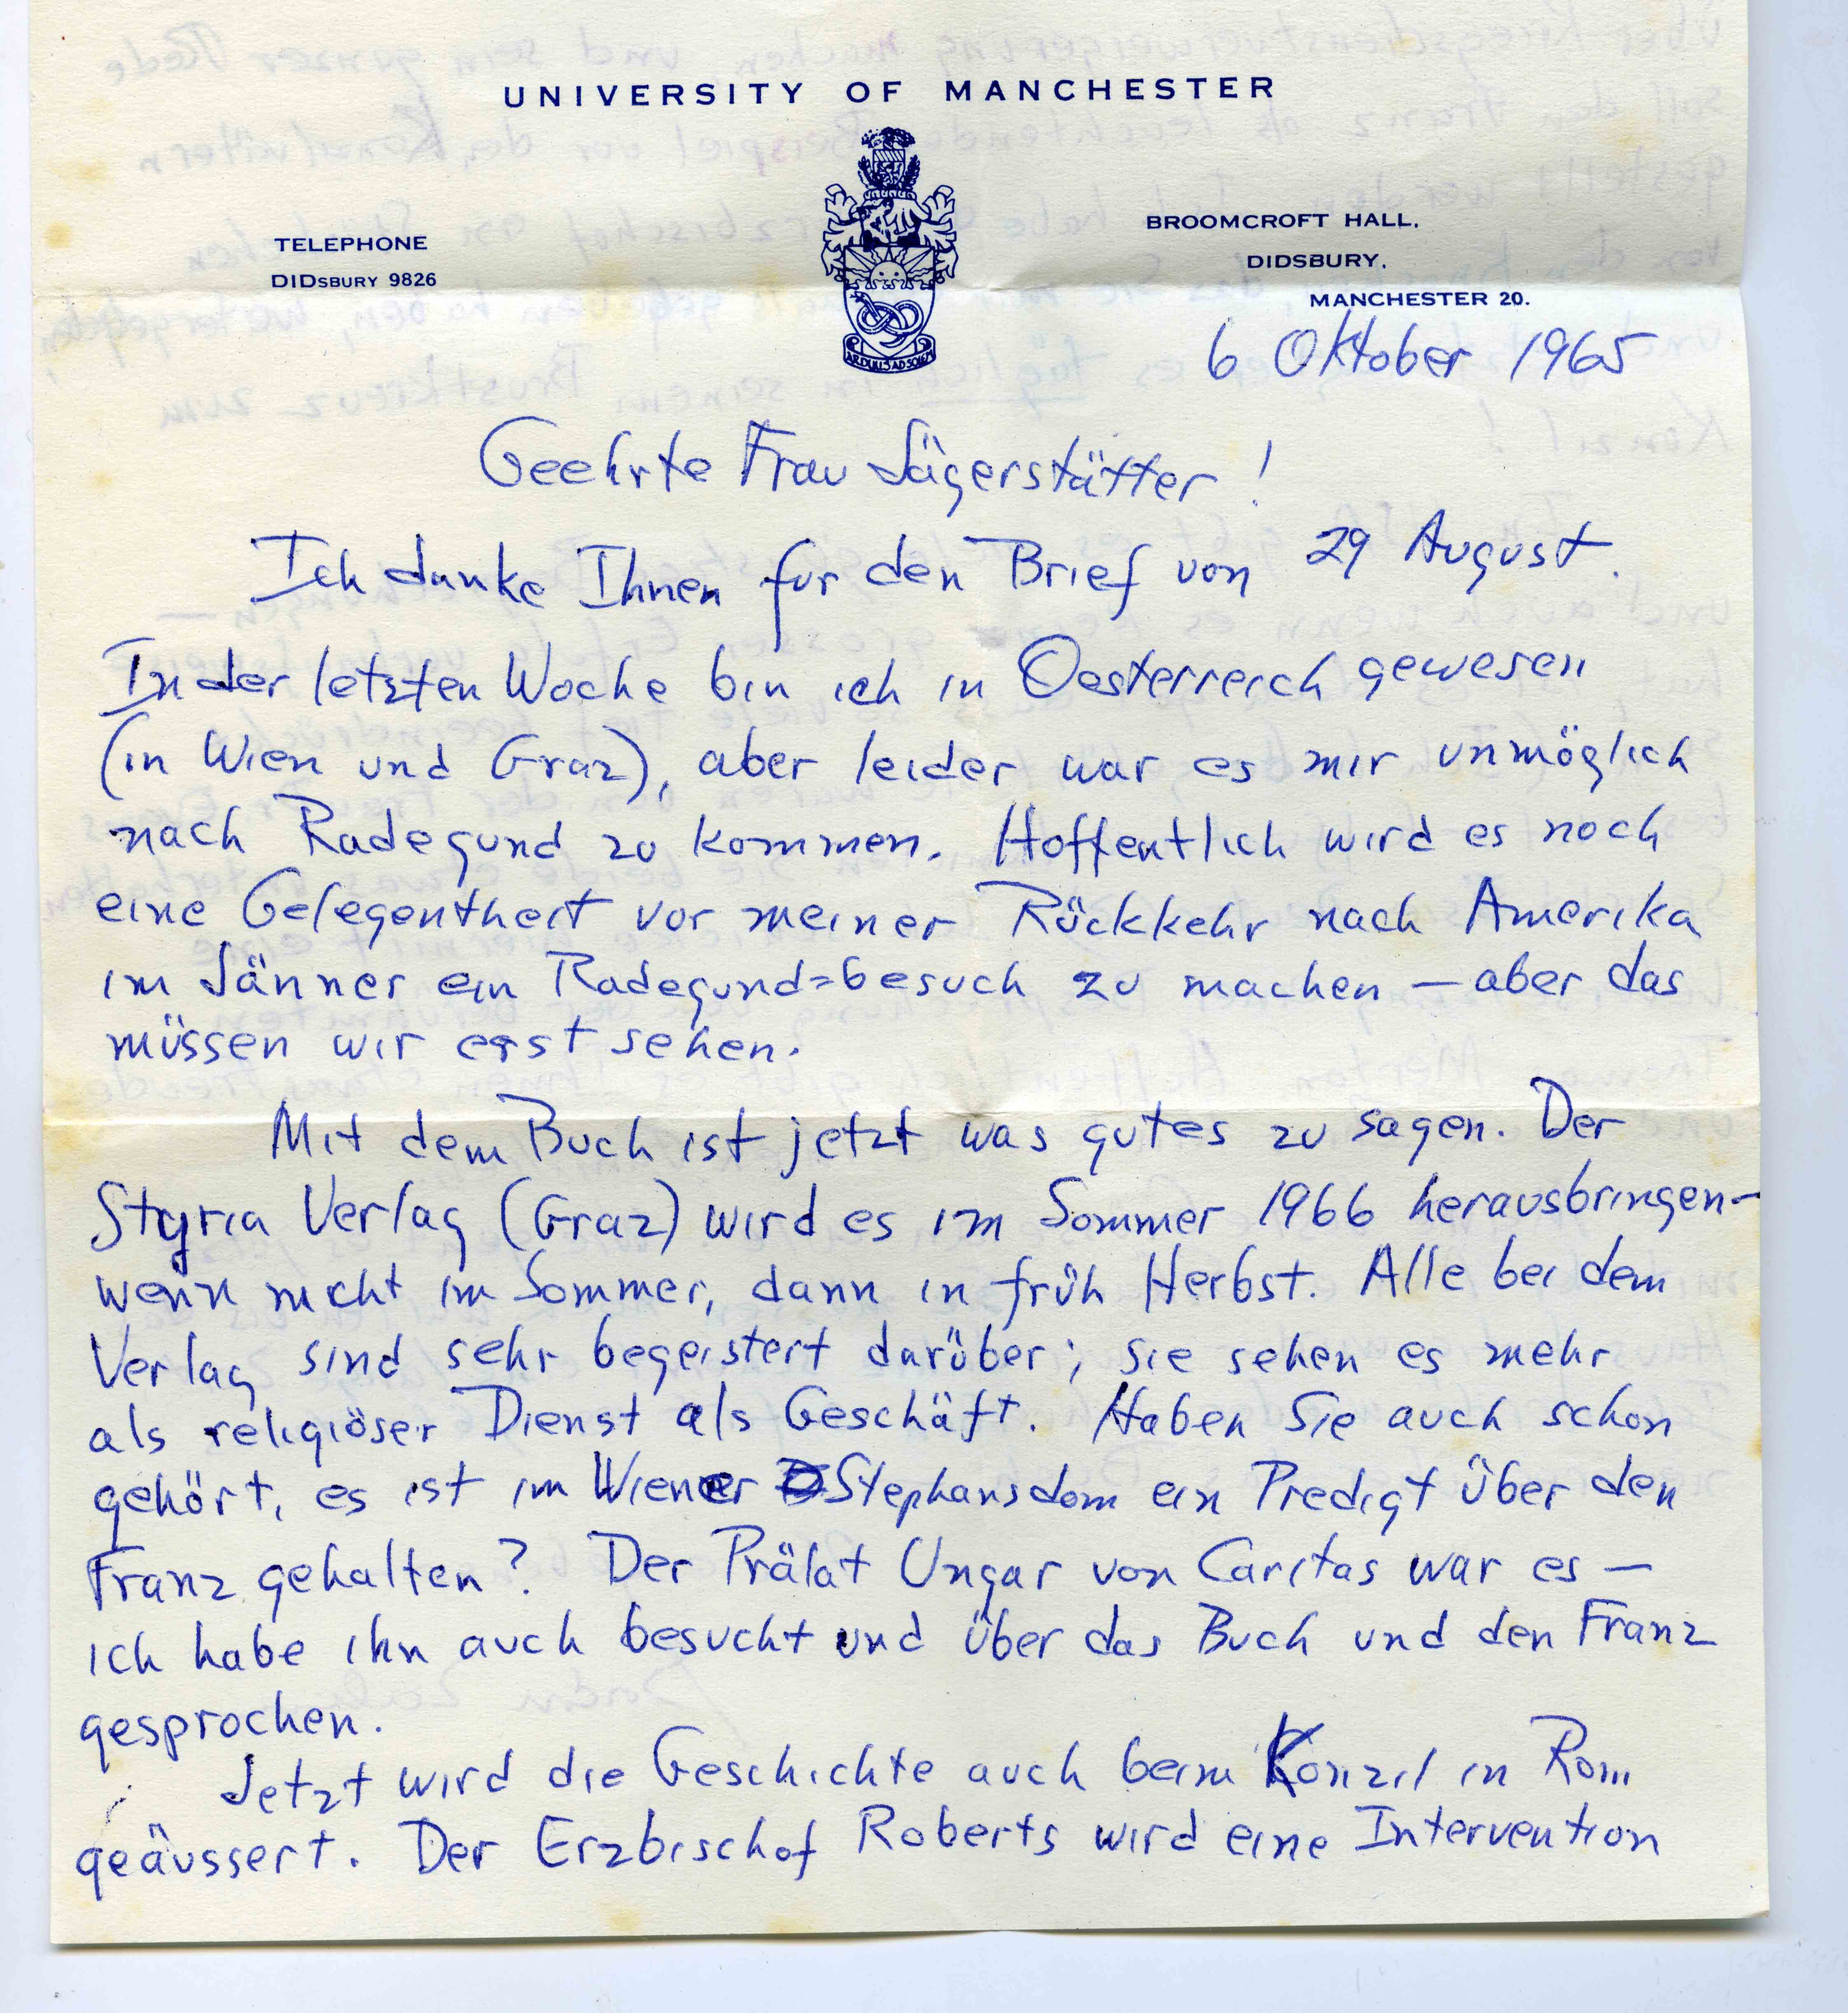 UNIVERSITY OF MANCHESTER
TELEPHONE
DIDSBURY 9826
ARDUUS AD SOLEM
BROOMCROFT HALL,
DIDSBURY,
MANCHESTER 20.
6 Oktober 1965
Geehrte Frau Jägerstätter!
Ich danke Ihnen für den Brief von 29 August.
In der letzten Woche bin ich in Oesterreich gewesen
(in Wien und Graz), aber leider war es mir unmöglich
nach Radegund zu kommen. Hoffentlich wird es noch
eine Gelegentheit vor meiner Rückkehr nach Amerika
im Jänner ein Radegund=besuch zu machen — aber das
müssen wir erst sehen.
Mit dem Buch ist jetzt was gutes zu sagen. Der
Styria Verlag (Graz) wird es im Sommer 1966 herausbringen—
wenn nicht im Sommer, dann in früh Herbst. Alle bei dem
Verlag sind sehr begeistert darüber; sie sehen es mehr
als religiöser Dienst als Geschäft. Haben Sie auch schon
gehört, es ist im Wiener Stephansdom ein Predigt über den
Franz gehalten? Der Prälat Ungar von Caritas war es —
ich habe ihn auch besucht und über das Buch und den Franz
gesprochen.
Jetzt wird die Geschichte auch beim Konzil in Rom
geäussert. Der Erzbischof Roberts wird eine Intervention